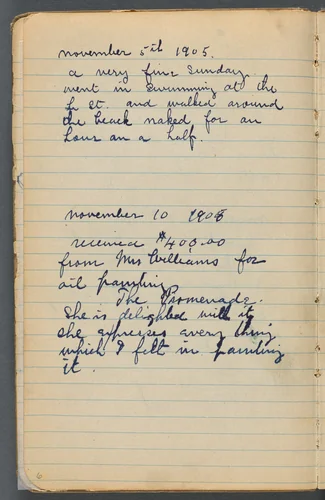 november 5th 1905.
a very fine Sunday
went in swimming at the
and walked around
the beach naked for an
hour an a half.
november 10 1905
received $400.00
from Mrs Williams for
oil painting
The Promenade.
She is delighted with it
she expresses every thing
which I felt in painting
it.